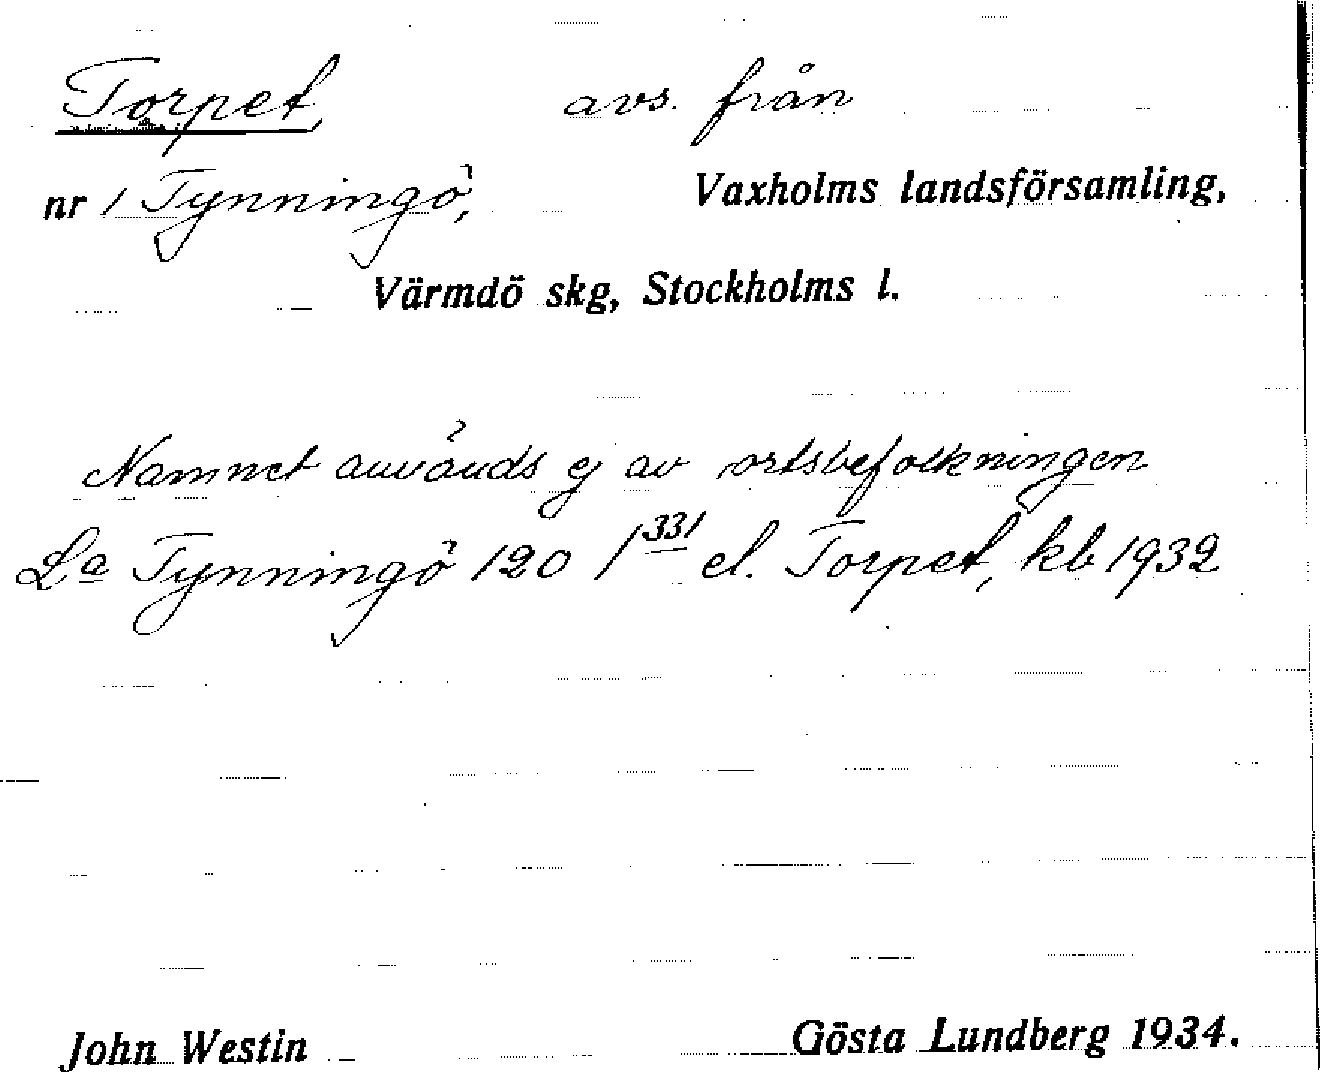 Torpet, avs. från
nr 1 Tynningö, Vaxholms landsförsamling,
Värmdö skg, Stockholms l.
Namnet används ej av ortsbefolkningen
La Tynningö 120 1 331 el. Torpet, kb 1932
John Westin Gösta Lundberg 1934.